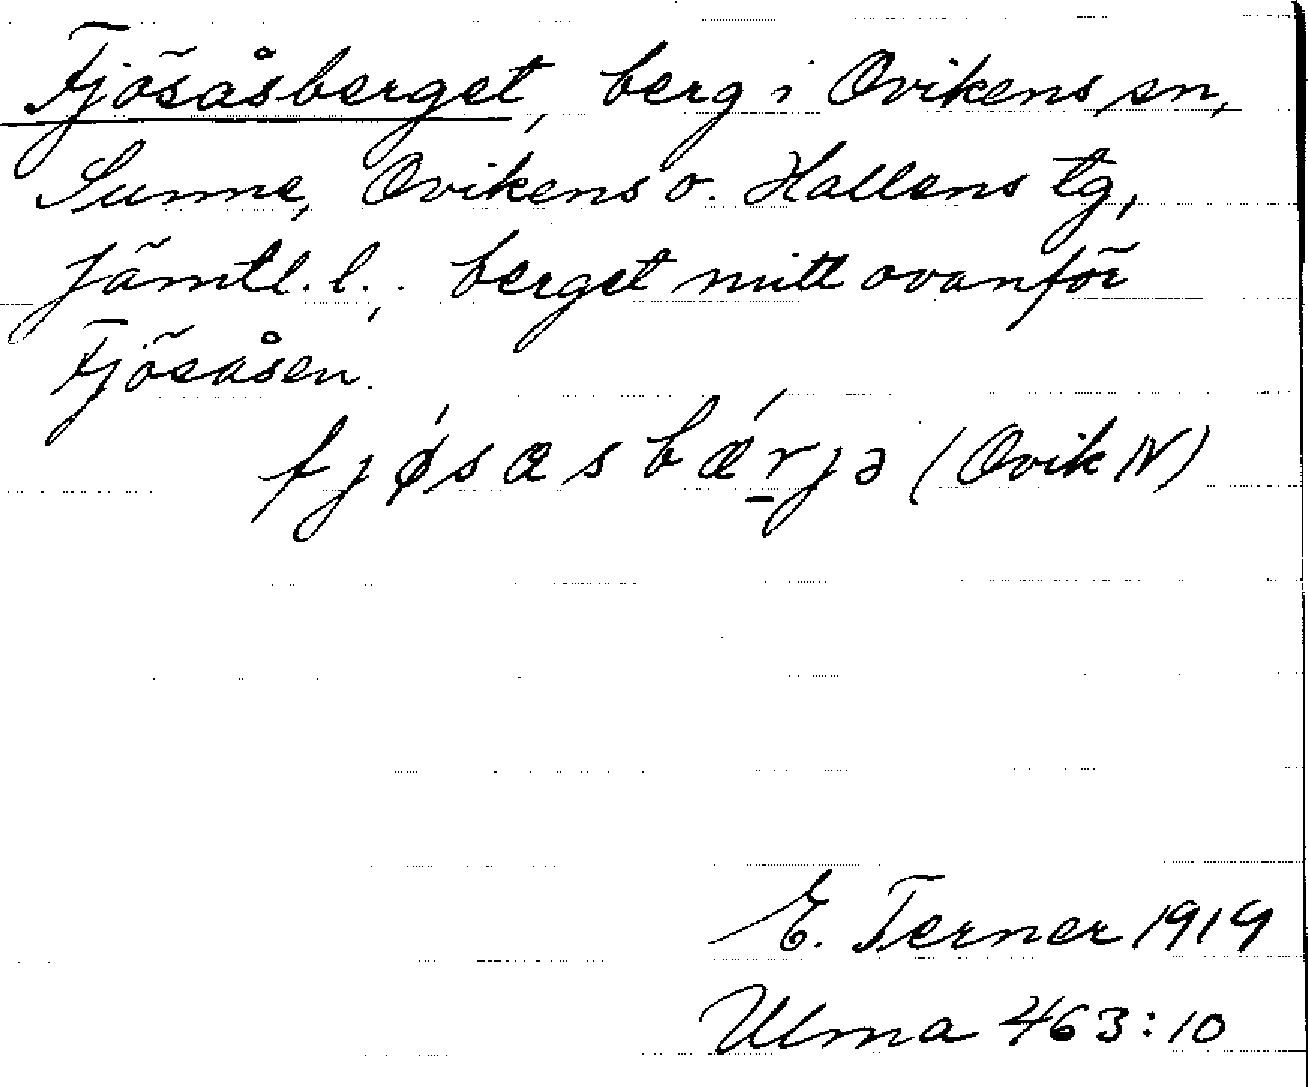 Fjösåsberget, berg i Ovikens sn,
Sunne, Ovikens o. Hallens tg,
Jämtl. l.: berget mitt ovanför
Fjösåsen.
fjǿsasbǽr̠jə (Ovik N)
E. Terner 1919
Ulma 463:10